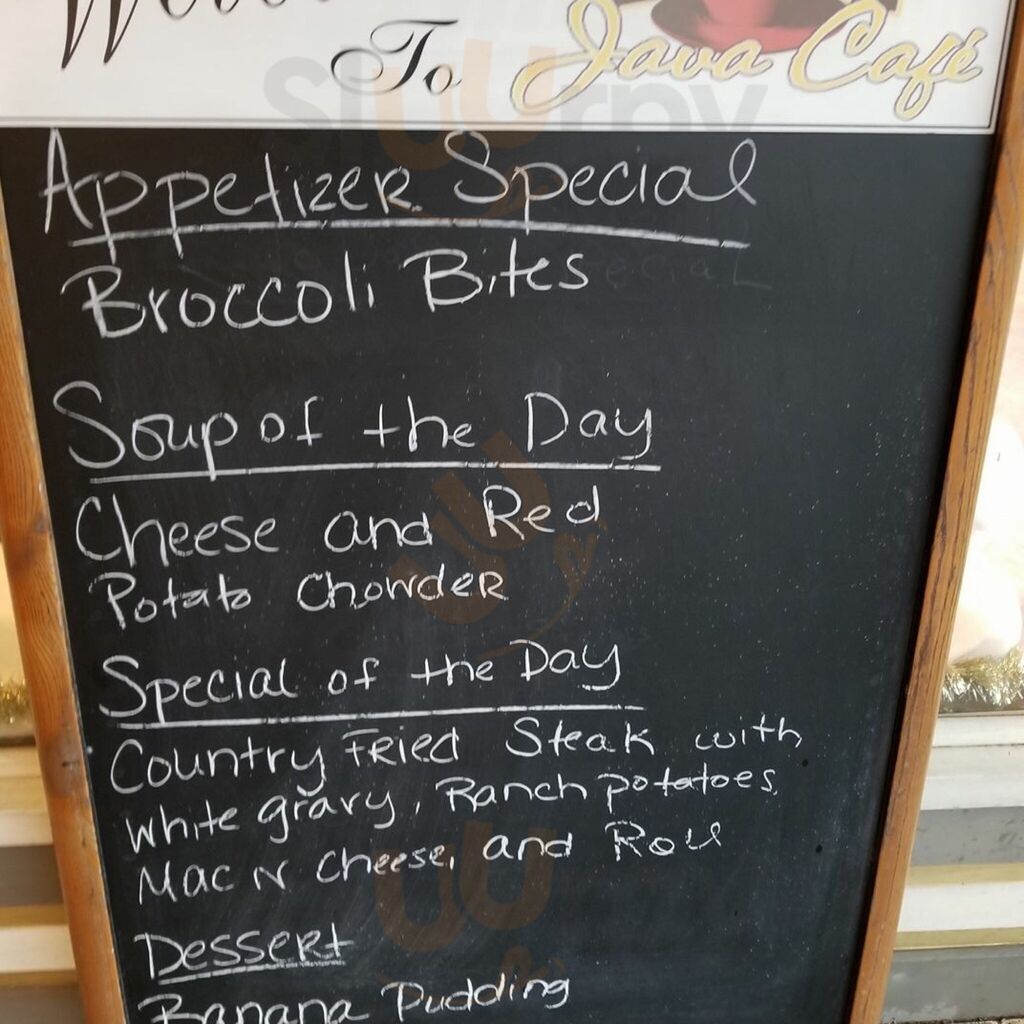 To Java Café
Appetizer Special
Broccoli Bites
Soup of the Day
Cheese and Red
Potato Chowder
Special of the Day
Country Fried Steak with
white gravy, Ranch potatoes,
Mac N Cheese, and Roll
Dessert
Banana Pudding
sluurpy